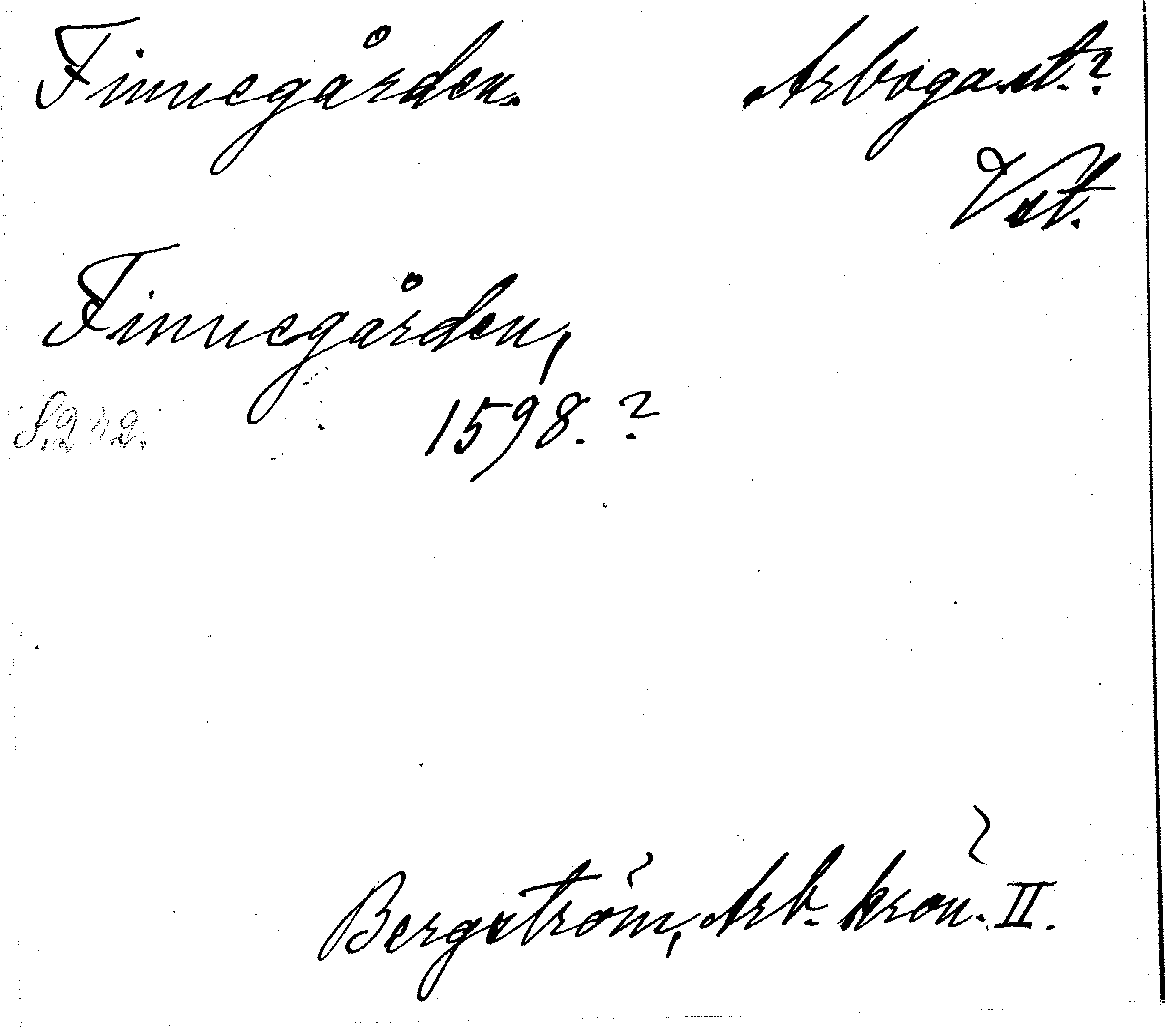 Finnegården. Arboga st.?
Vst.
Finnegården,
S. 242. 1598. ?
Bergström, Arb. krön. II.